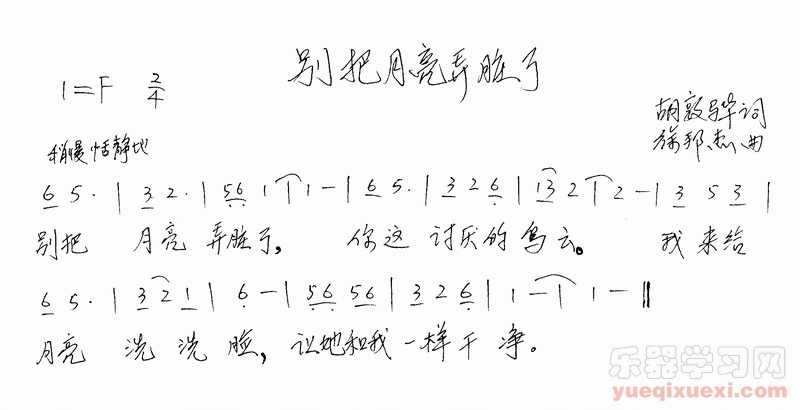 别把月亮弄脏了
1=F 2/4
胡敦骅词
徐邦杰曲
稍慢恬静地
6 5· | 3 2· | 56 1 | 1 - | 6 5· | 3 2 6 | 13 2 | 2 - | 3 5 3 |
别把 月亮 弄脏了, 你这 讨厌的 乌云。 我来给
6 5· | 3 2 1 | 6 - | 56 56 | 3 2 6 | 1 - | 1 - ‖
月亮 洗洗脸, 让她和我一样干净。
乐器学习网
yueqixuexi.com